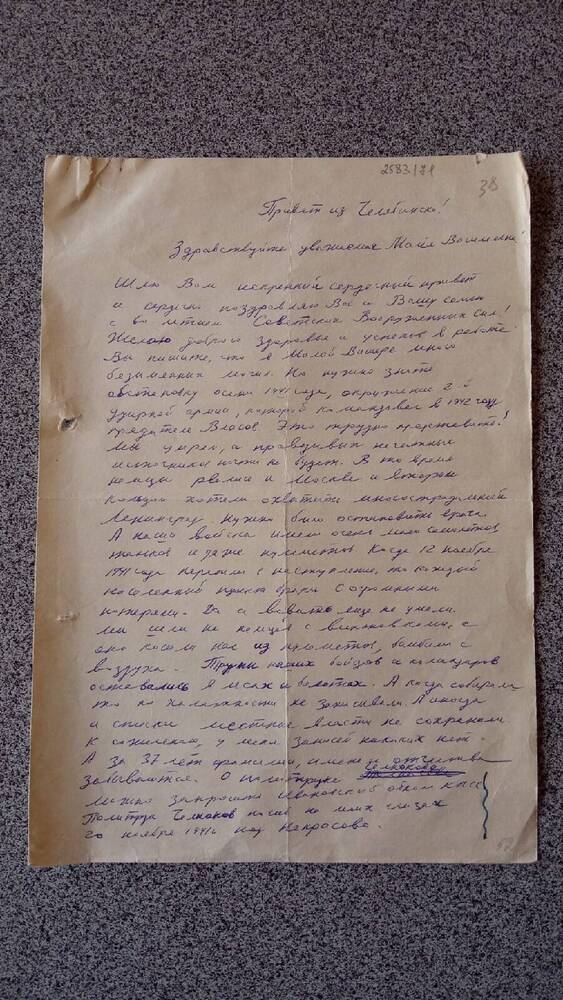 2583/71
38
Привет из Челябинска!
Здравствуйте уважаемая Майя
Шлю Вам искренний сердечный привет
и сердечно поздравляю Вас и Вашу семью
с 60 летием Советских Вооруженных Сил!
Желаю доброго здоровья и успехов в работе!
Вы пишите, что в Малой Вишере много
безымянных могил. Но нужно знать
обстановку осени 1941 года, окружение 2й
ударной армии, которой командовал в 1942 году
предатель Власов. Это трудно представить!
Мы умрем, а правдивых печатных
источников почти не будет. В то время
немцы рвались к Москве и вторым
кольцом хотели охватить многострадальный
Ленинград. Нужно было остановить врага.
А наши войска имели очень мало самолетов
танков и даже пулеметов. Когда 12 ноября
1941 года перешли в наступление, то каждый
населенный пункт брали с огромными
потерями. Да и воевать еще не умели.
Мы шли на немцев с винтовками, а
они косили нас из пулеметов, бомбили с
воздуха. Трупы наших бойцов и командиров
оставались в лесах и болотах. А когда собирали
то по халатности не записывали. А иногда
и списки местные власти не сохранили.
К сожалению, у меня записей никаких нет.
А за 37 лет фамилии, имена и отчества
забываются. О политруке
можно запросить Ивановский обком КПСС
Политрук погиб на моих глазах
20 ноября 1941г под Некрасово.